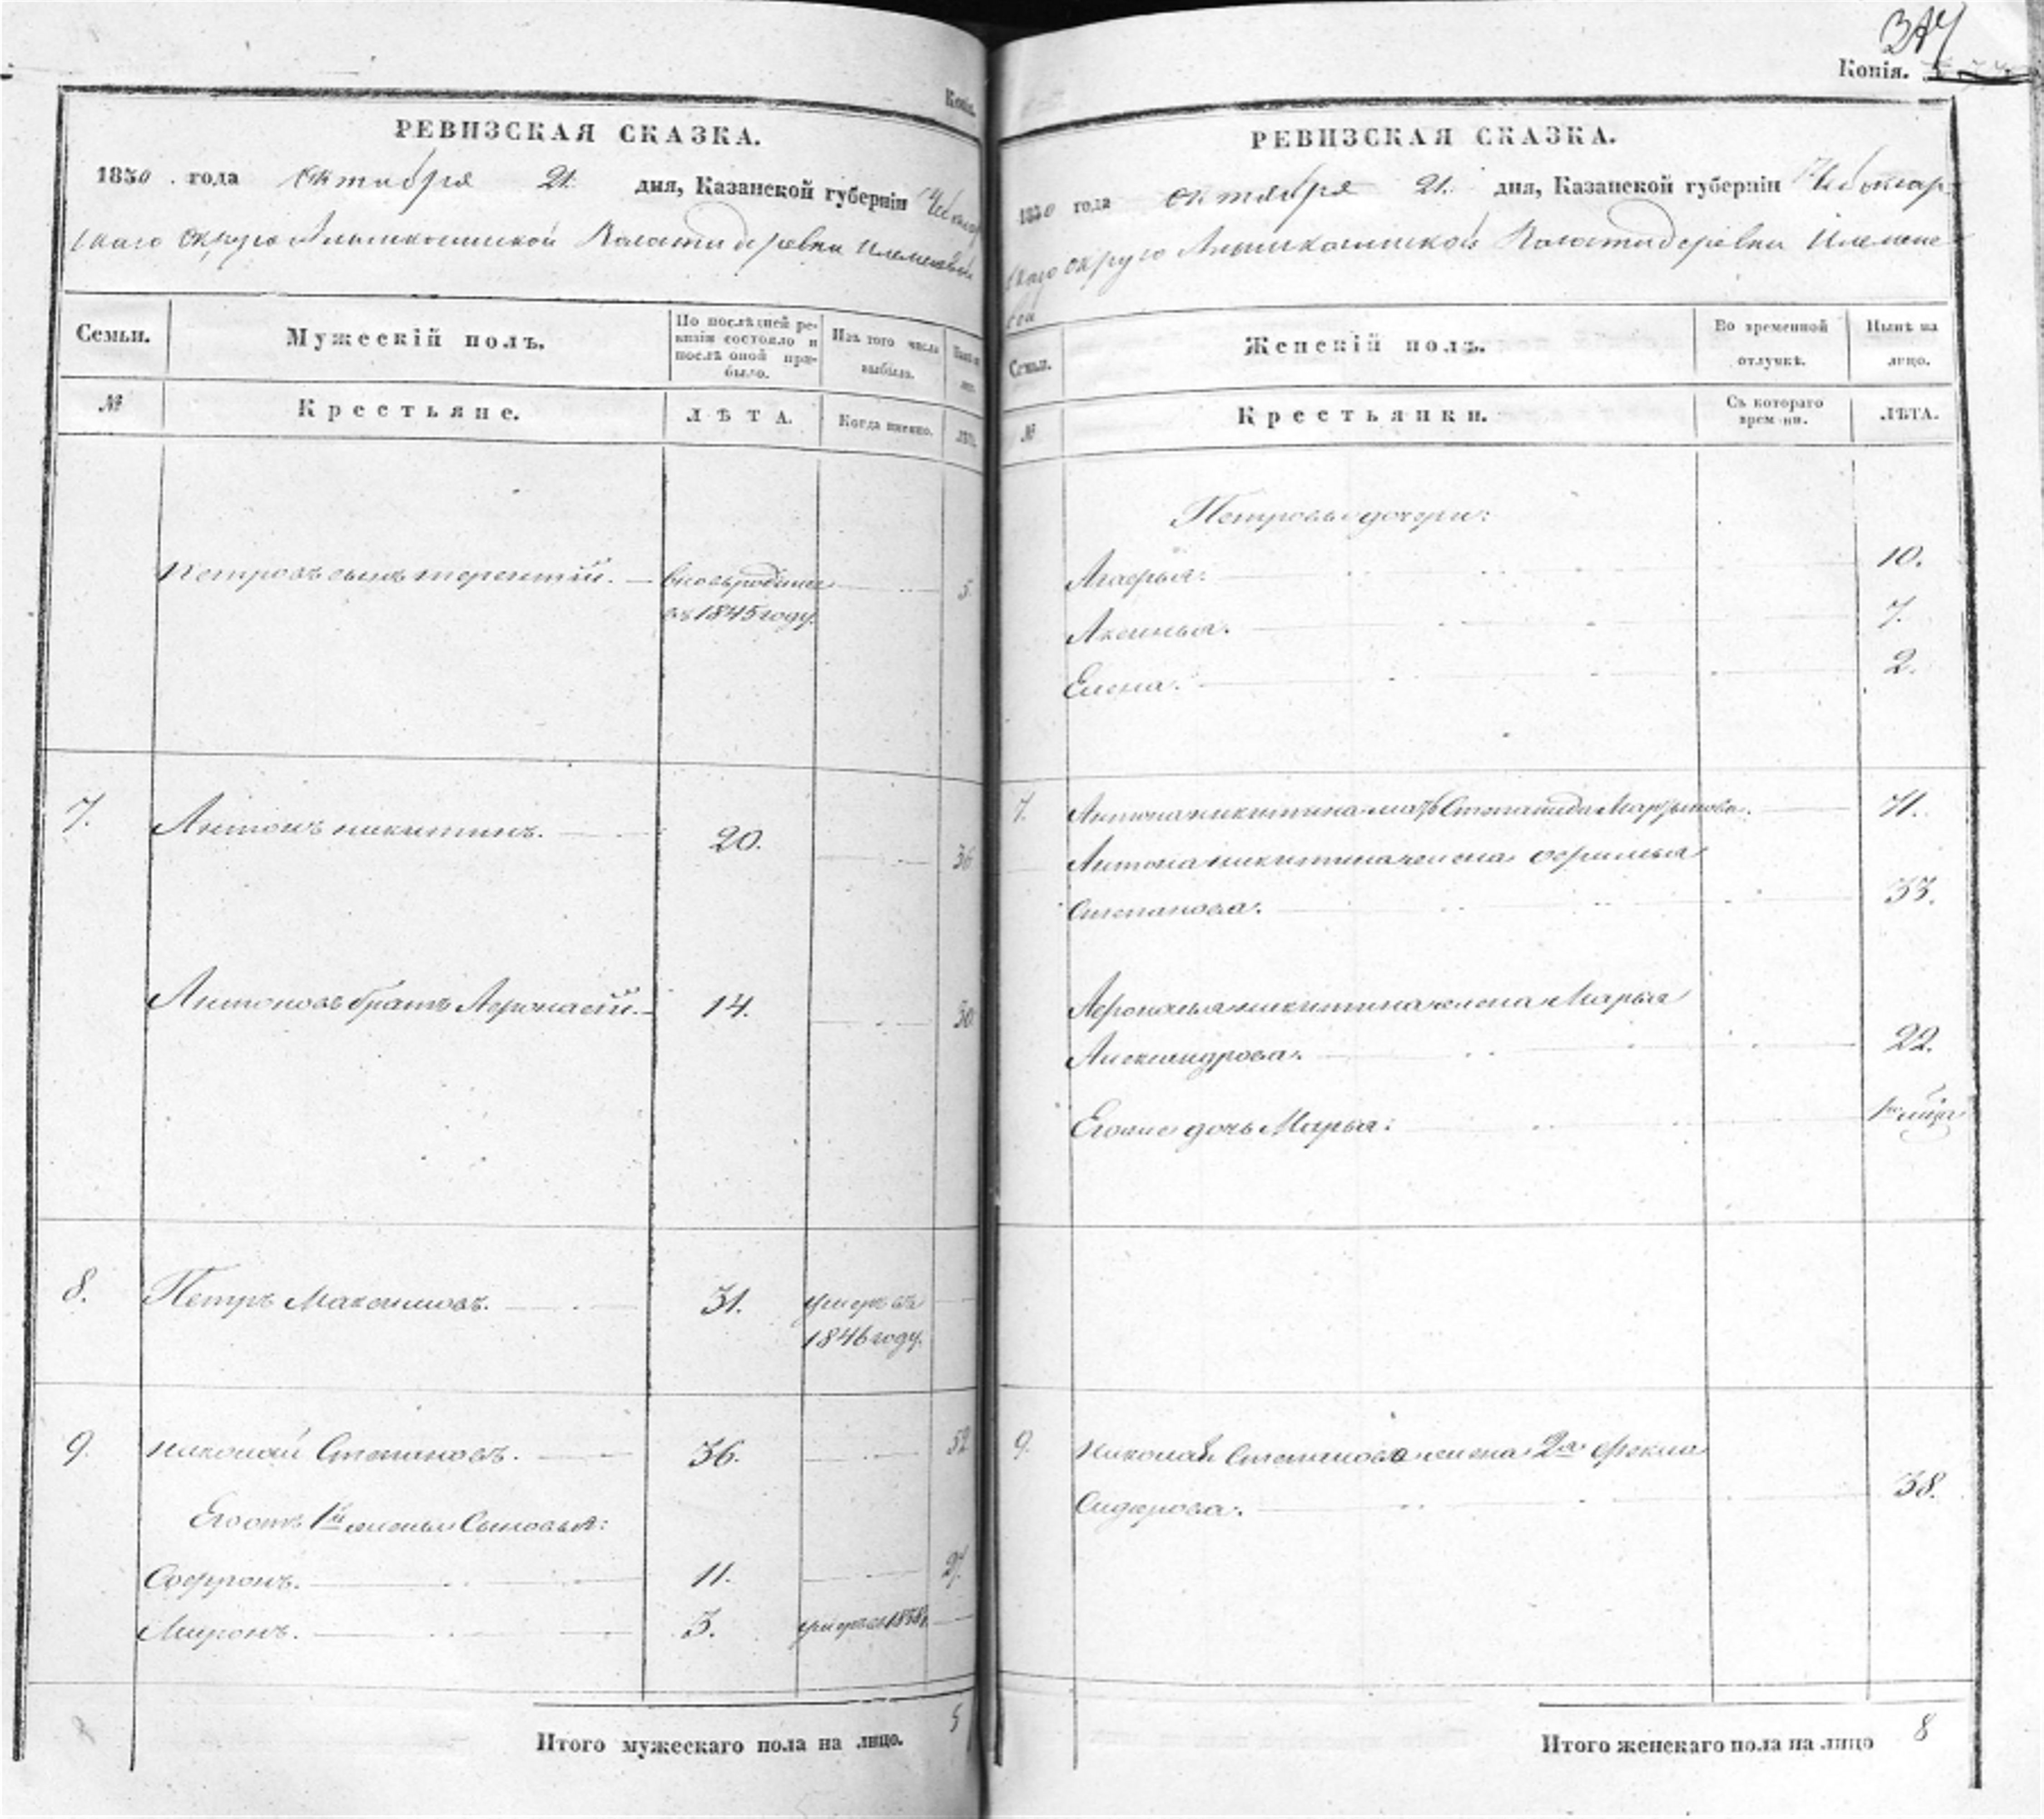 Копія.
РЕВИЗСКАЯ СКАЗКА.
1850 года октября 21. дня, Казанской губерніи Чебокар
скаго округа Алымкасинской Волости деревни
Семьи.
Мужескій полъ.
По послѣдней ре-
визіи состояло и
послѣ оной при-
было.
Изъ того числа
выбыло.
№
Крестьяне.
ЛѢТА.
Когда именно.
Петровъ сынъ терентій. вновь рожденъ 5.
въ 1845 году.
7. Антонъ никитинъ. 20. 36
Антоновъ братъ Афонасій. 14. 30
8. Петръ Максимовъ. 31. умеръ въ
1846 году.
9. николай Степановъ. 36. 52
Его отъ 1й жены Сыновья:
Софронъ. 11. 27.
Миронъ. 3. умеръ въ 1838.
Итого мужескаго пола на лицо. 5
Копія.
РЕВИЗСКАЯ СКАЗКА.
1850 года октября 21. дня, Казанской губерніи Чебокар
скаго округа Алымкасинской Волости деревни
Семьи.
Женскій полъ.
Во временной
отлучкѣ.
Нынѣ на
лицо.
№
Крестьянки.
Съ котораго
времени.
ЛѢТА.
Петровы дочери:
Агафья: 10.
Аксинья. 7.
Елена. 2.
7. Антона никитина мать Степанида Мартынова. 71.
Антона никитина жена
Степанова. 33.
Афонасья никитина жена Марья
Александрова. 22.
Его же дочь Марья:
9. Николая Степанова жена 2я Фекла
Сидорова. 38.
Итого женскаго пола на лицо 8